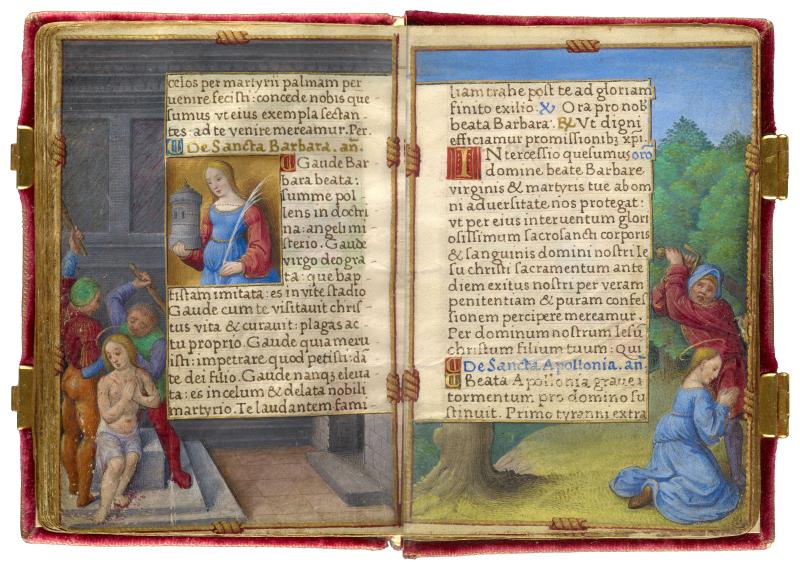 celos per martyrii palmam per
uenire fecisti: concede nobis que
sumus vt eius exempla sectan
tes: ad te venire mereamur. Per.
De Sancta Barbara. an.
Gaude Bar
bara beata:
summe pol
lens in doctri
na: angeli mi
sterio. Gaude
virgo deo gra
ta: que bap
tistam imitata: es in vite stadio
Gaude cum te visitauit chris
tus vita & curauit: plagas ac
tu proprio. Gaude quia meru
isti: impetrare quod petisti: dā
te dei filio. Gaude nanqȝ eleua
ta: es in celum & delata nobili
martyrio. Te laudantem fami
liam trahe post te ad gloriam
finito exilio. ℣ Ora pro nob
beata Barbara. ℟ Vt digni
efficiamur promissionibȝ xp̄i.
INtercessio quesumus orō
domine beate Barbare
virginis & martyris tue ab om
ni aduersitate nos protegat:
vt per eius interuentum glori
osissimum sacrosancti corporis
& sanguinis domini nostri Ie
su christi sacramentum ante
diem exitus nostri per veram
penitentiam & puram confes
sionem percipere mereamur.
Per dominum nostrum Iesū
christum filium tuum: Qui
De Sancta Apollonia. an
Beata Apollonia graue
tormentum pro domino su
stinuit. Primo tyranni extra